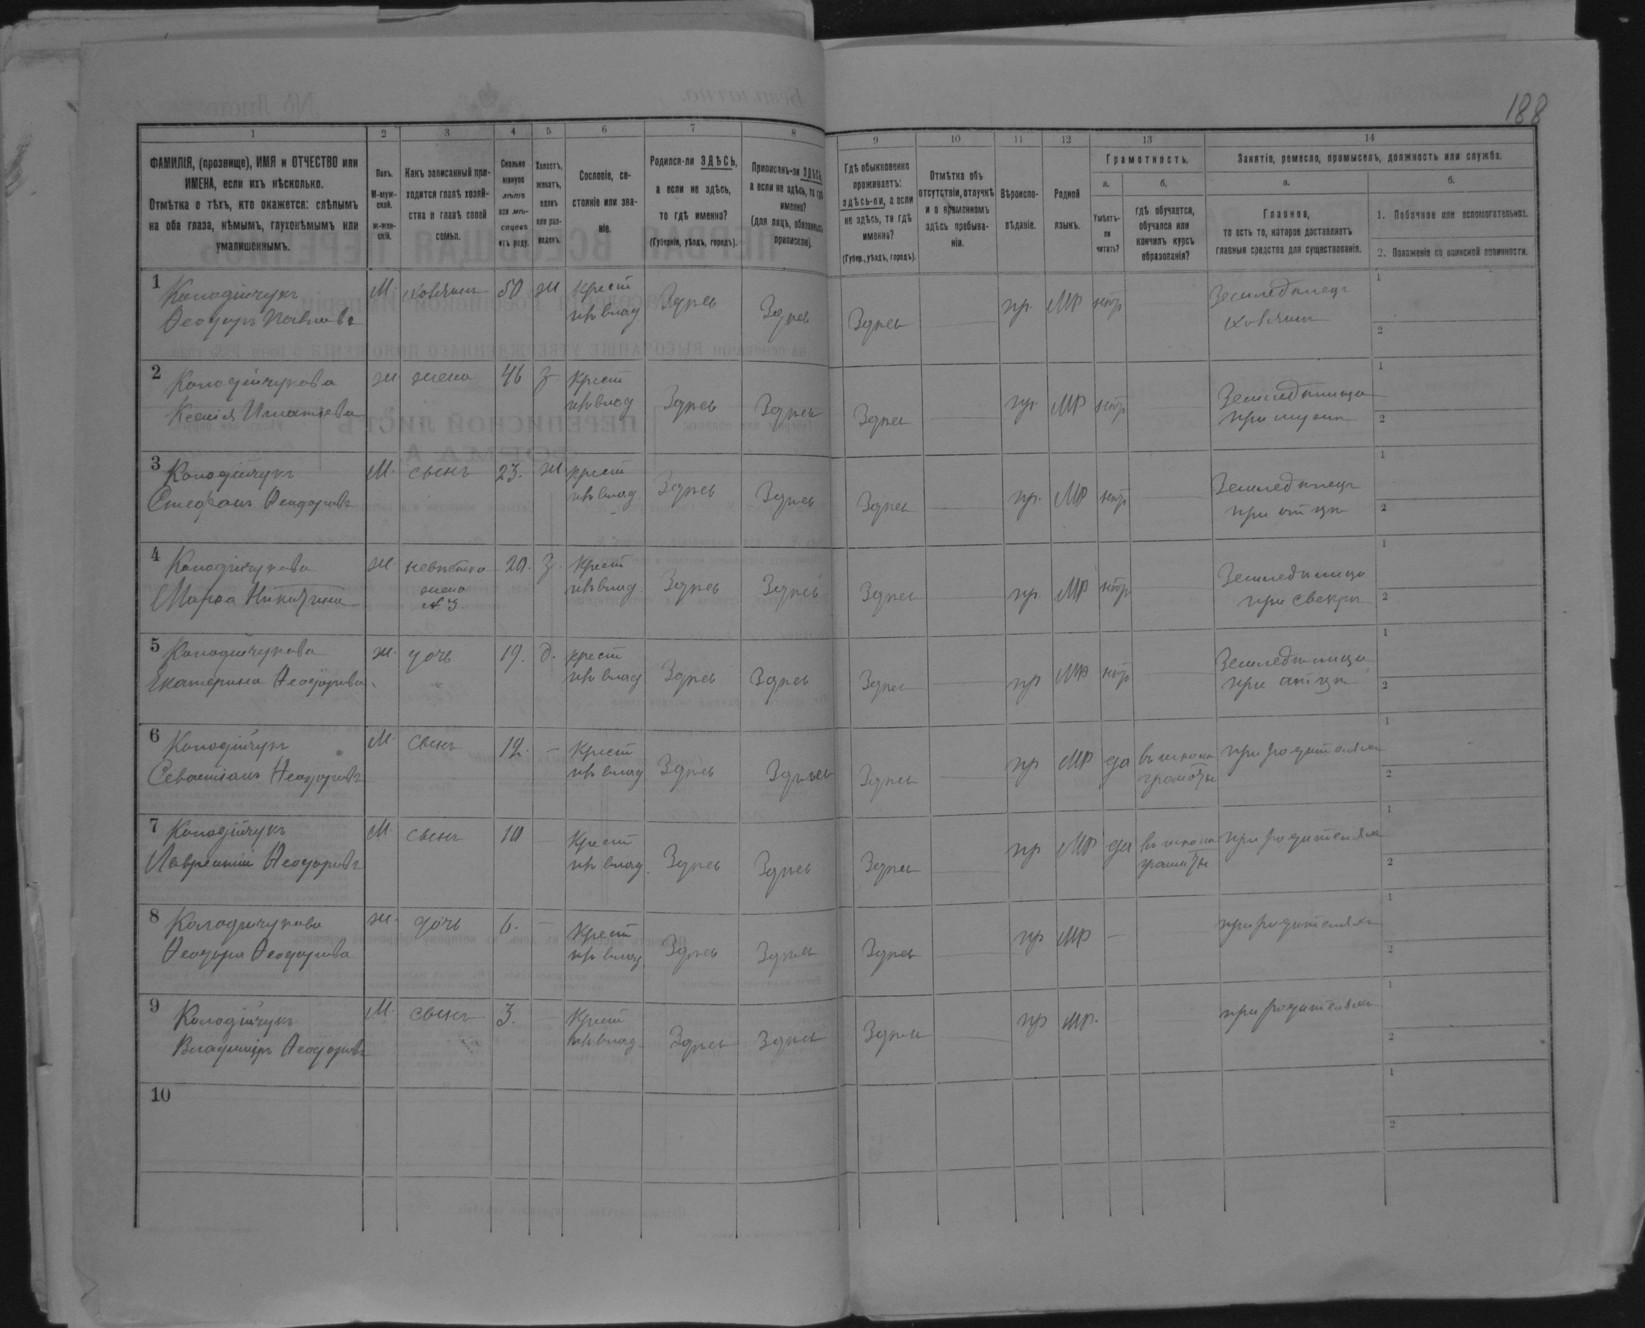 188
1 2 3 4 5 6 7 8 9 10 11 12 13 14
ФАМИЛІЯ, (прозвище), ИМЯ и ОТЧЕСТВО или
ИМЕНА, если ихъ нѣсколько.
Отмѣтка о тѣхъ, кто окажется: слѣпымъ
на оба глаза, нѣмымъ, глухонѣмымъ или
умалишеннымъ.
Полъ.
М-муж-
ской.
Ж-жен-
скій.
Какъ записанный при-
ходится главѣ хозяй-
ства и главѣ своей
семьи.
Сколько
минуло
лѣтъ
или мѣ-
сяцевъ
отъ роду.
Холостъ,
женатъ,
вдовъ
или раз-
веденъ.
Сословіе, со-
стояніе или зва-
ніе.
Родился-ли ЗДѢСЬ,
а если не здѣсь,
то гдѣ именно?
(Губернія, уѣздъ, городъ).
Приписанъ-ли ЗДѢСЬ,
а если не здѣсь, то гдѣ
именно?
(для лицъ, обязанныхъ
припискою).
Гдѣ обыкновенно
проживаетъ:
здѣсь-ли, а если
не здѣсь, то гдѣ
именно?
(Губер., уѣздъ, городъ).
Отмѣтка объ
отсутствіи, отлучкѣ
и о временномъ
здѣсь пребыва-
ніи.
Вѣроиспо-
вѣданіе.
Родной
языкъ.
Грамотность.
а.
Умѣетъ-
ли
читать?
б.
гдѣ обучается,
обучался или
кончилъ курсъ
образованія?
Занятіе, ремесло, промыселъ, должность или служба.
а.
Главное,
то есть то, которое доставляетъ
главныя средства для существованія.
б.
1. Побочное или вспомогательное.
2. Положеніе по воинской повинности.
1 Колодійчукъ М. хозяинъ 50 ж крест Здѣсь Здѣсь Здѣсь пр. МР нѣтъ Земледѣлецъ 1
Ѳеодоръ Павловъ хозяинъ 2
2 Колодійчукова ж жена 46 з крест Здѣсь Здѣсь Здѣсь пр. МР нѣтъ Земледѣлица 1
Ксенія Игнатіева при мужѣ 2
3 Колодійчукъ М. сынъ 23. ж крест Здѣсь Здѣсь Здѣсь пр. МР нѣтъ Земледѣлецъ 1
Стефанъ Ѳеодоровъ при отцѣ 2
4 Колодійчукова ж. невѣстка 20. з. крест Здѣсь Здѣсь Здѣсь пр. МР нѣтъ Земледѣлица 1
Марѳа жена при свекрѣ 2
№ 3
5 Колодійчукова ж. дочь 19. д. крест Здѣсь Здѣсь Здѣсь пр МР нѣтъ Земледѣлица 1
Екатерина Ѳеодорова при отцѣ 2
6 Колодійчукъ М. сынъ 12. — крест Здѣсь Здѣсь Здѣсь пр МР да въ школѣ при родителяхъ 1
Севастіанъ Ѳеодоровъ грамоты 2
7 Колодійчукъ М сынъ 10 — крест Здѣсь Здѣсь Здѣсь пр МР да въ школѣ при родителяхъ 1
Лаврентій Ѳеодоровъ грамоты 2
8 Колодійчукова ж. дочь 6. — крест Здѣсь Здѣсь Здѣсь пр МР — при родителяхъ 1
Ѳеодора Ѳеодорова 2
9 Колодійчукъ М. сынъ 3. — крест Здѣсь Здѣсь Здѣсь пр МР. при родителяхъ 1
Владиміръ Ѳеодоровъ 2
10 1
2